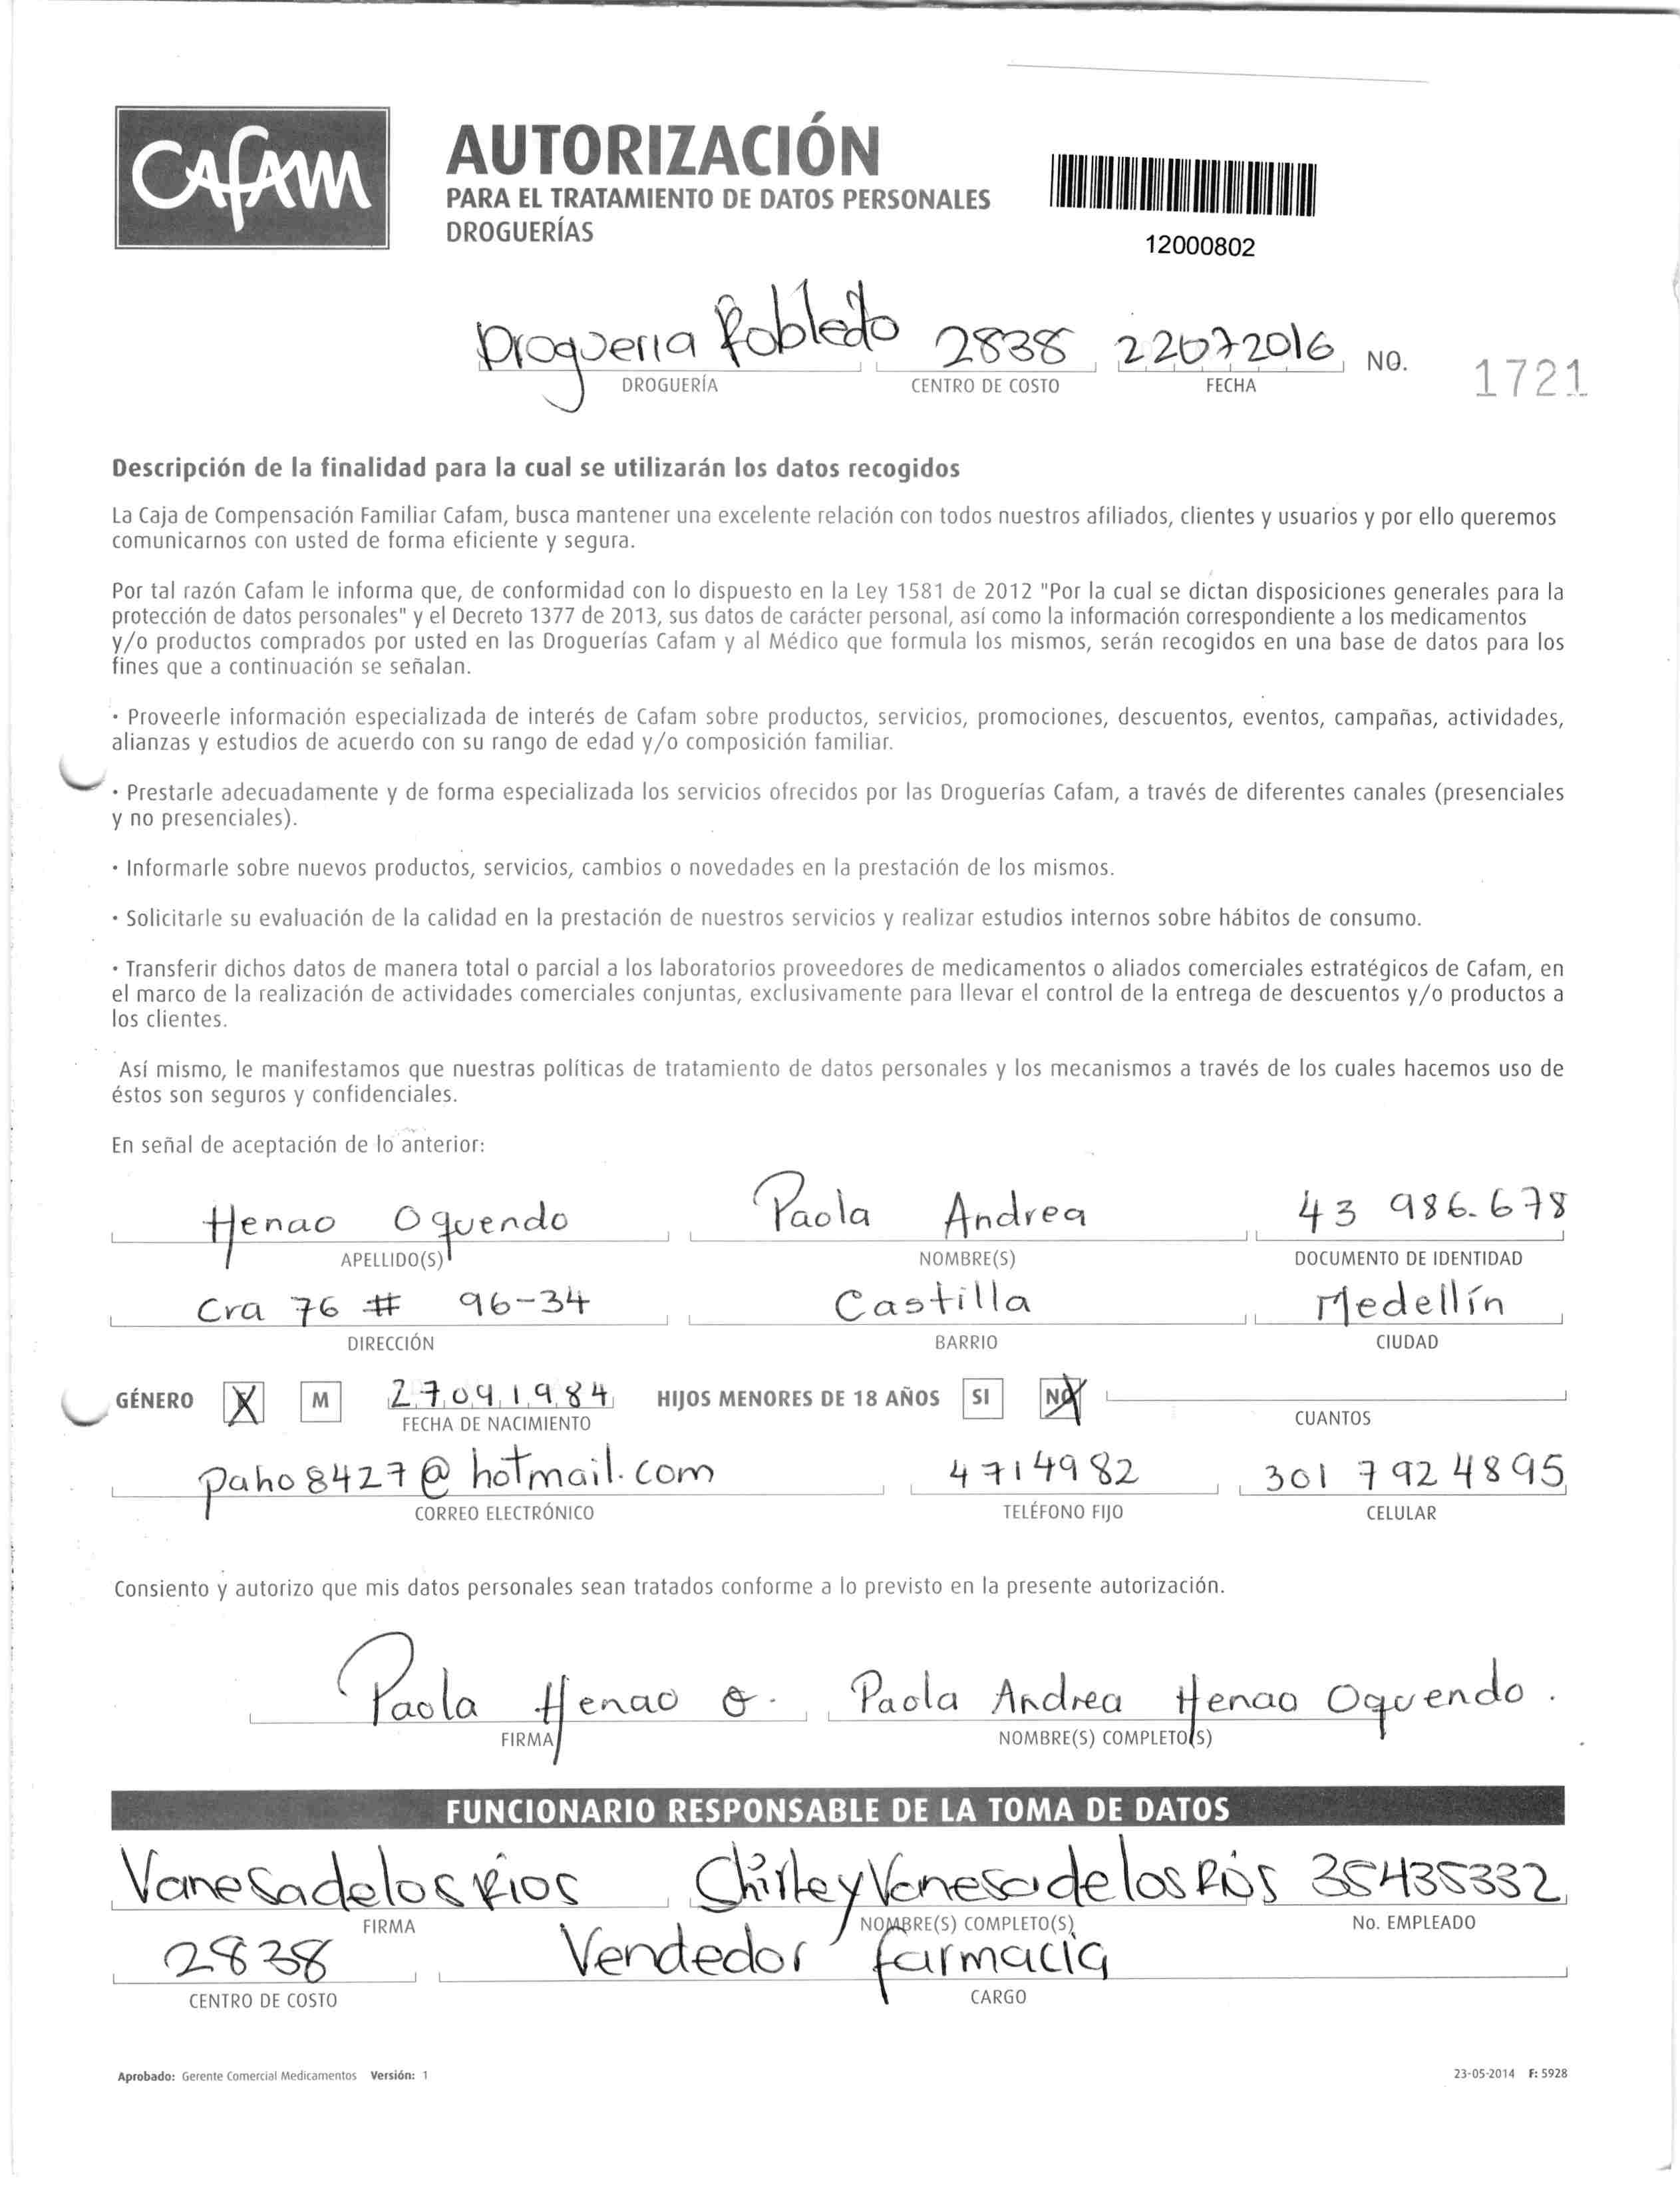 CAFAM
AUTORIZACIÓN
PARA EL TRATAMIENTO DE DATOS PERSONALES
DROGUERÍAS
12000802
Drogueria Robledo 2838 22072016 NO. 1721
DROGUERÍA CENTRO DE COSTO FECHA
Descripción de la finalidad para la cual se utilizarán los datos recogidos
La Caja de Compensación Familiar Cafam, busca mantener una excelente relación con todos nuestros afiliados, clientes y usuarios y por ello queremos
comunicarnos con usted de forma eficiente y segura.
Por tal razón Cafam le informa que, de conformidad con lo dispuesto en la Ley 1581 de 2012 "Por la cual se dictan disposiciones generales para la
protección de datos personales" y el Decreto 1377 de 2013, sus datos de carácter personal, así como la información correspondiente a los medicamentos
y/o productos comprados por usted en las Droguerías Cafam y al Médico que formula los mismos, serán recogidos en una base de datos para los
fines que a continuación se señalan.
· Proveerle información especializada de interés de Cafam sobre productos, servicios, promociones, descuentos, eventos, campañas, actividades,
alianzas y estudios de acuerdo con su rango de edad y/o composición familiar.
· Prestarle adecuadamente y de forma especializada los servicios ofrecidos por las Droguerías Cafam, a través de diferentes canales (presenciales
y no presenciales).
· Informarle sobre nuevos productos, servicios, cambios o novedades en la prestación de los mismos.
· Solicitarle su evaluación de la calidad en la prestación de nuestros servicios y realizar estudios internos sobre hábitos de consumo.
· Transferir dichos datos de manera total o parcial a los laboratorios proveedores de medicamentos o aliados comerciales estratégicos de Cafam, en
el marco de la realización de actividades comerciales conjuntas, exclusivamente para llevar el control de la entrega de descuentos y/o productos a
los clientes.
Así mismo, le manifestamos que nuestras políticas de tratamiento de datos personales y los mecanismos a través de los cuales hacemos uso de
éstos son seguros y confidenciales.
En señal de aceptación de lo anterior:
Henao Oquendo Paola Andrea 43 986.678
APELLIDO(S) NOMBRE(S) DOCUMENTO DE IDENTIDAD
Cra 76 # 96-34 Castilla Medellín
DIRECCIÓN BARRIO CIUDAD
GÉNERO X M 27041984 HIJOS MENORES DE 18 AÑOS SI NO X
FECHA DE NACIMIENTO CUANTOS
paho8427@hotmail.com 4714982 301 792 4895
CORREO ELECTRÓNICO TELÉFONO FIJO CELULAR
Consiento y autorizo que mis datos personales sean tratados conforme a lo previsto en la presente autorización.
Paola Henao O. Paola Andrea Henao Oquendo.
FIRMA NOMBRE(S) COMPLETO(S)
FUNCIONARIO RESPONSABLE DE LA TOMA DE DATOS
Vanesa de los Rios Chirley Vanesa de los Rios 35435332
FIRMA NOMBRE(S) COMPLETO(S) No. EMPLEADO
2838 Vendedor farmacia
CENTRO DE COSTO CARGO
Aprobado: Gerente Comercial Medicamentos Versión: 1 23-05-2014 F: 5928